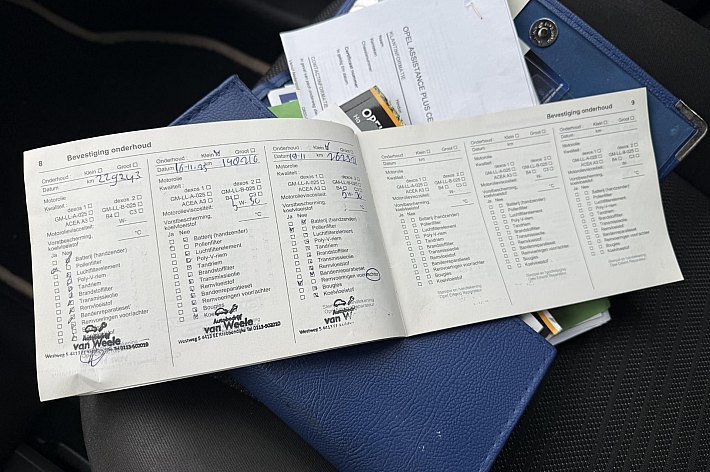 OPEL ASSISTANCE PLUS CE
KLANTINFORMATIE
Naam:
Kenteken:
CONTACTINFORMATIE
OPEL
8 Bevestiging onderhoud
Onderhoud Klein Groot
Datum km 229243
Motorolie
Kwaliteit: dexos 1 dexos 2
GM-LL-A-025 GM-LL-B-025
ACEA A3 B4 C3
Motorolieviscositeit: W-
Vorstbescherming,
koelvloeistof °C
Ja Nee
Batterij (handzender)
Pollenfilter
Luchtfilterelement
Poly-V-riem
Tandriem
Brandstoffilter
Transmissieolie
Remvloeistof
Bandenreparatieset
Remvoeringen voor/achter
Bougies
Koelvloeistof
Autobedrijf
van Weele
Onderhoud Klein Groot
Datum km
Motorolie
Kwaliteit: dexos 1 dexos 2
GM-LL-A-025 GM-LL-B-025
ACEA A3 B4 C3
Motorolieviscositeit: 5 W- 30
Vorstbescherming,
koelvloeistof °C
Ja Nee
Batterij (handzender)
Pollenfilter
Luchtfilterelement
Poly-V-riem
Tandriem
Brandstoffilter
Transmissieolie
Remvloeistof
Bandenreparatieset
Remvoeringen voor/achter
Bougies
Koelvloeistof
Autobedrijf
van Weele
Onderhoud Klein Groot
Datum km
Motorolie
Kwaliteit: dexos 1 dexos 2
GM-LL-A-025 GM-LL-B-025
ACEA A3 B4 C3
Motorolieviscositeit: 5 W- 30
Vorstbescherming,
koelvloeistof °C
Ja Nee
Batterij (handzender)
Pollenfilter
Luchtfilterelement
Poly-V-riem
Tandriem
Brandstoffilter
Transmissieolie
Remvloeistof
Bandenreparatieset
Remvoeringen voor/achter
Bougies
Koelvloeistof
van W
Bevestiging onderhoud 9
Onderhoud Klein Groot
Datum km
Motorolie
Kwaliteit: dexos 1 dexos 2
GM-LL-A-025 GM-LL-B-025
ACEA A3 B4 C3
Motorolieviscositeit: W-
Vorstbescherming,
koelvloeistof °C
Ja Nee
Batterij (handzender)
Pollenfilter
Luchtfilterelement
Poly-V-riem
Tandriem
Brandstoffilter
Transmissieolie
Remvloeistof
Bandenreparatieset
Remvoeringen voor/achter
Bougies
Koelvloeistof
Onderhoud Klein Groot
Datum km
Motorolie
Kwaliteit: dexos 1 dexos 2
GM-LL-A-025 GM-LL-B-025
ACEA A3 B4 C3
Motorolieviscositeit: W-
Vorstbescherming,
koelvloeistof °C
Ja Nee
Batterij (handzender)
Pollenfilter
Luchtfilterelement
Poly-V-riem
Tandriem
Brandstoffilter
Transmissieolie
Remvloeistof
Bandenreparatieset
Remvoeringen voor/achter
Bougies
Koelvloeistof
Onderhoud Klein Groot
Datum km
Motorolie
Kwaliteit: dexos 1 dexos 2
GM-LL-A-025 GM-LL-B-025
ACEA A3 B4 C3
Motorolieviscositeit: W-
Vorstbescherming,
koelvloeistof °C
Ja Nee
Batterij (handzender)
Pollenfilter
Luchtfilterelement
Poly-V-riem
Tandriem
Brandstoffilter
Transmissieolie
Remvloeistof
Bandenreparatieset
Remvoeringen voor/achter
Bougies
Koelvloeistof